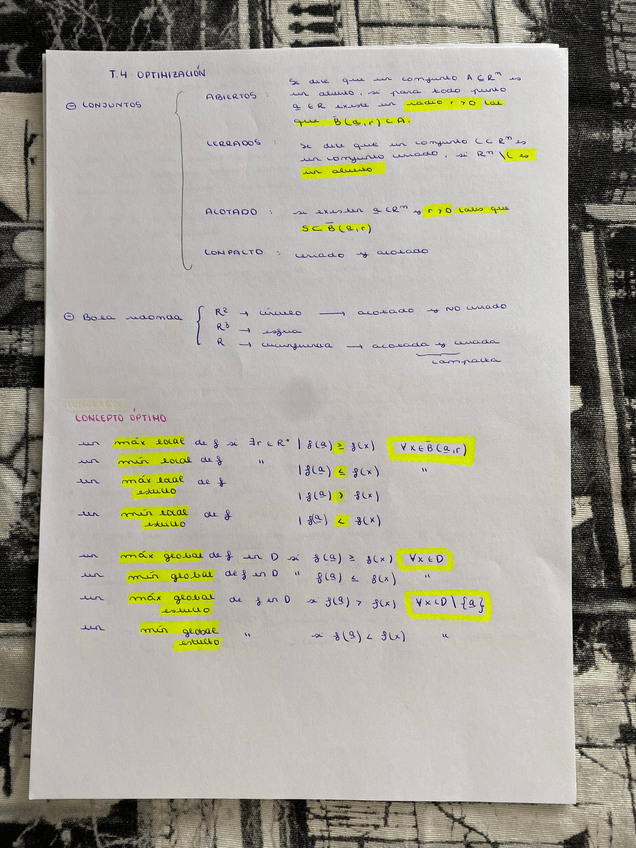 T.4 OPTIMIZACIÓN
⊖ CONJUNTOS
ABIERTOS : Se dice que un conjunto A ⊆ Rⁿ es
un abierto, si para todo punto
a ∈ R existe un radio r > 0 tal
que B(a,r) ⊂ A.
CERRADOS : Se dice que un conjunto C ⊂ Rⁿ es
un conjunto cerrado, si Rⁿ \ C es
un abierto
ACOTADO : si existen a ∈ Rⁿ y r > 0 tales que
S ⊂ B(a,r)
COMPACTO : cerrado y acotado
⊖ Bola redonda
R² → círculo → acotado y NO cerrado
R³ → esfera
R → circunferencia → acotada y cerrada
compacta
CONCEPTO ÓPTIMO
un máx local de f si ∃r ∈ R⁺ | f(a) ≥ f(x) ∀x ∈ B(a,r)
un mín local de f " | f(a) ≤ f(x) "
un máx local de f | f(a) > f(x)
estricto
un mín local de f | f(a) < f(x)
estricto
un máx global de f en D si f(a) ≥ f(x) ∀x ∈ D
un mín global de f en D " f(a) ≤ f(x) "
un máx global de f en D si f(a) > f(x) ∀x ∈ D \ {a}
estricto
un mín global " si f(a) < f(x) "
estricto